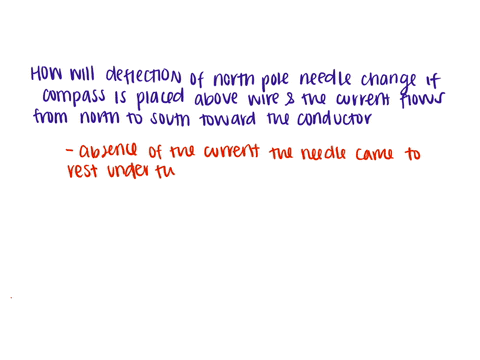 How will deflection of north pole needle change if
compass is placed above wire & the current flows
from north to south toward the conductor
- absence of the current the needle came to
rest under tu